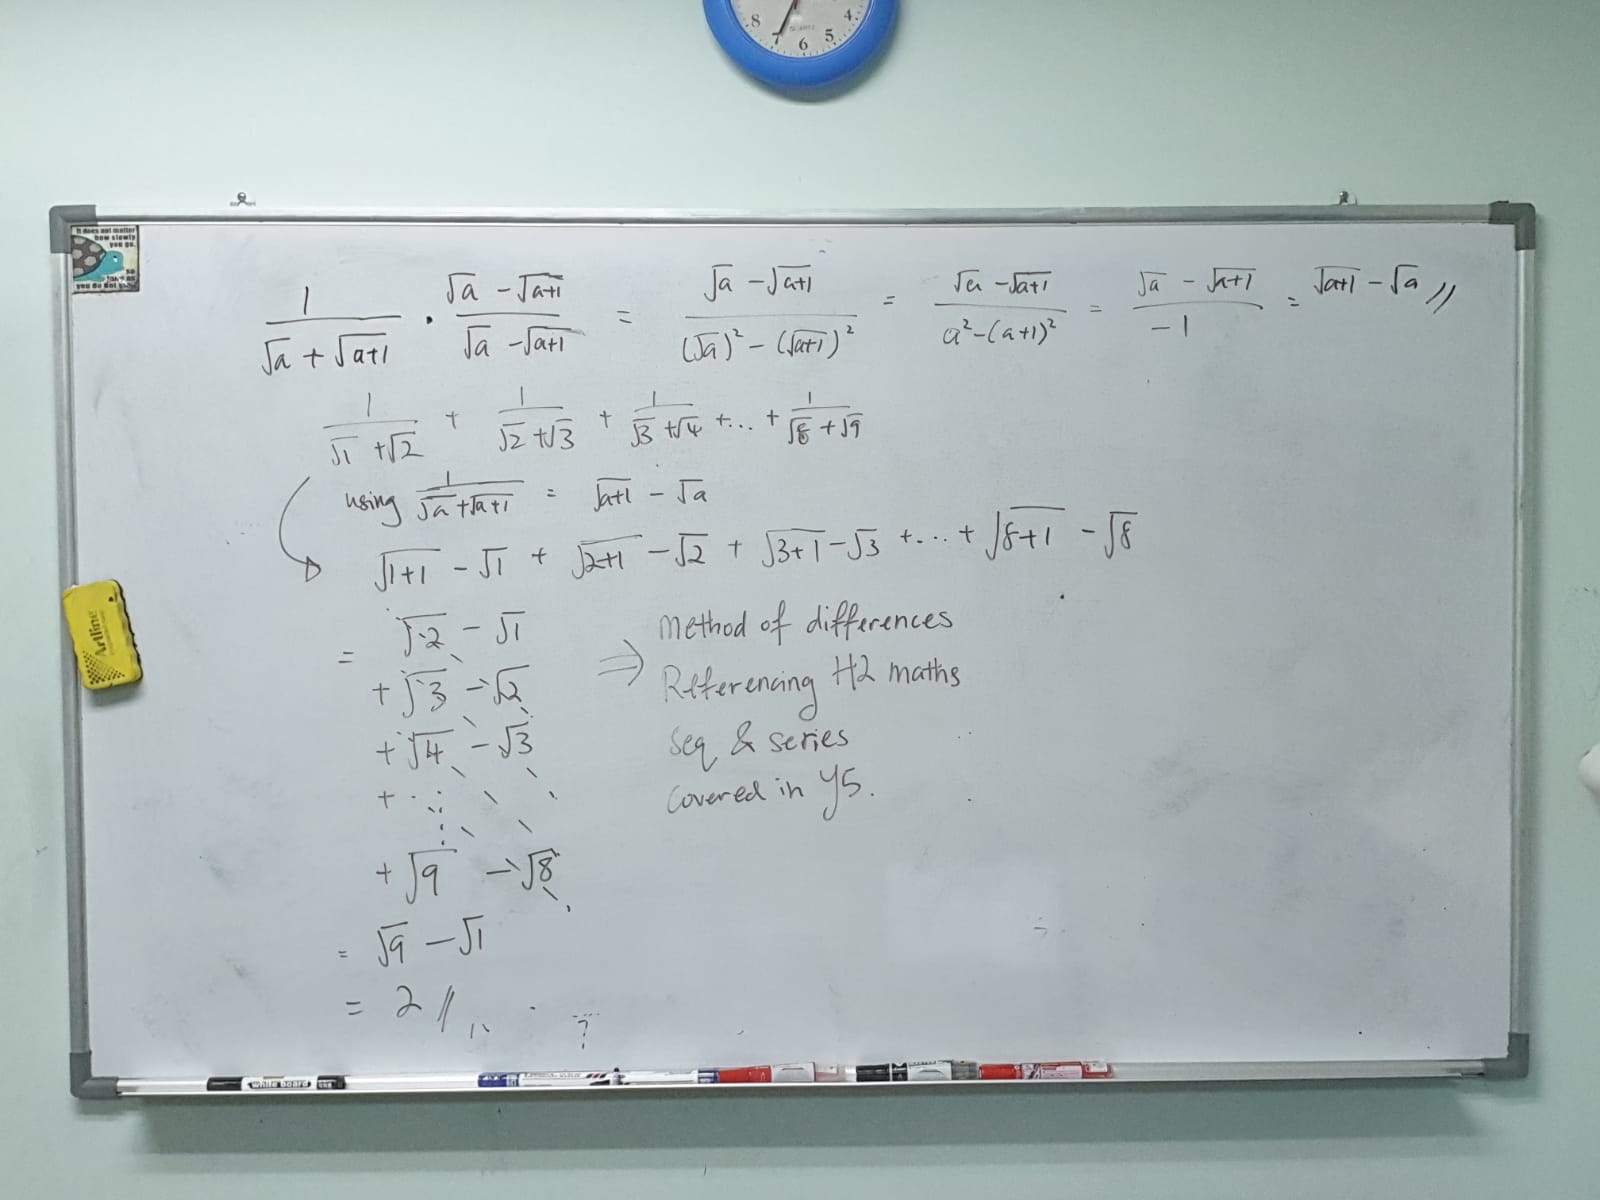 8 7 6 5 4
QUARTZ
It does not matter
how slowly
you go,
so
you do not stop
1/(√a + √(a+1)) · (√a - √(a+1))/(√a - √(a+1)) = (√a - √(a+1))/((√a)² - (√(a+1))²) = (√a - √(a+1))/(a² - (a+1)²) = (√a - √(a+1))/(-1) = √(a+1) - √a //
1/(√1 + √2) + 1/(√2 + √3) + 1/(√3 + √4) + ... + 1/(√8 + √9)
using 1/(√a + √(a+1)) = √(a+1) - √a
√(1+1) - √1 + √(2+1) - √2 + √(3+1) - √3 + ... + √(8+1) - √8
= √2 - √1
+ √3 - √2
+ √4 - √3
+ ...
+ √9 - √8
= √9 - √1
= 2 //
⇒ method of differences
Referencing H2 maths
seq & series
covered in Y5.
Artline
white board